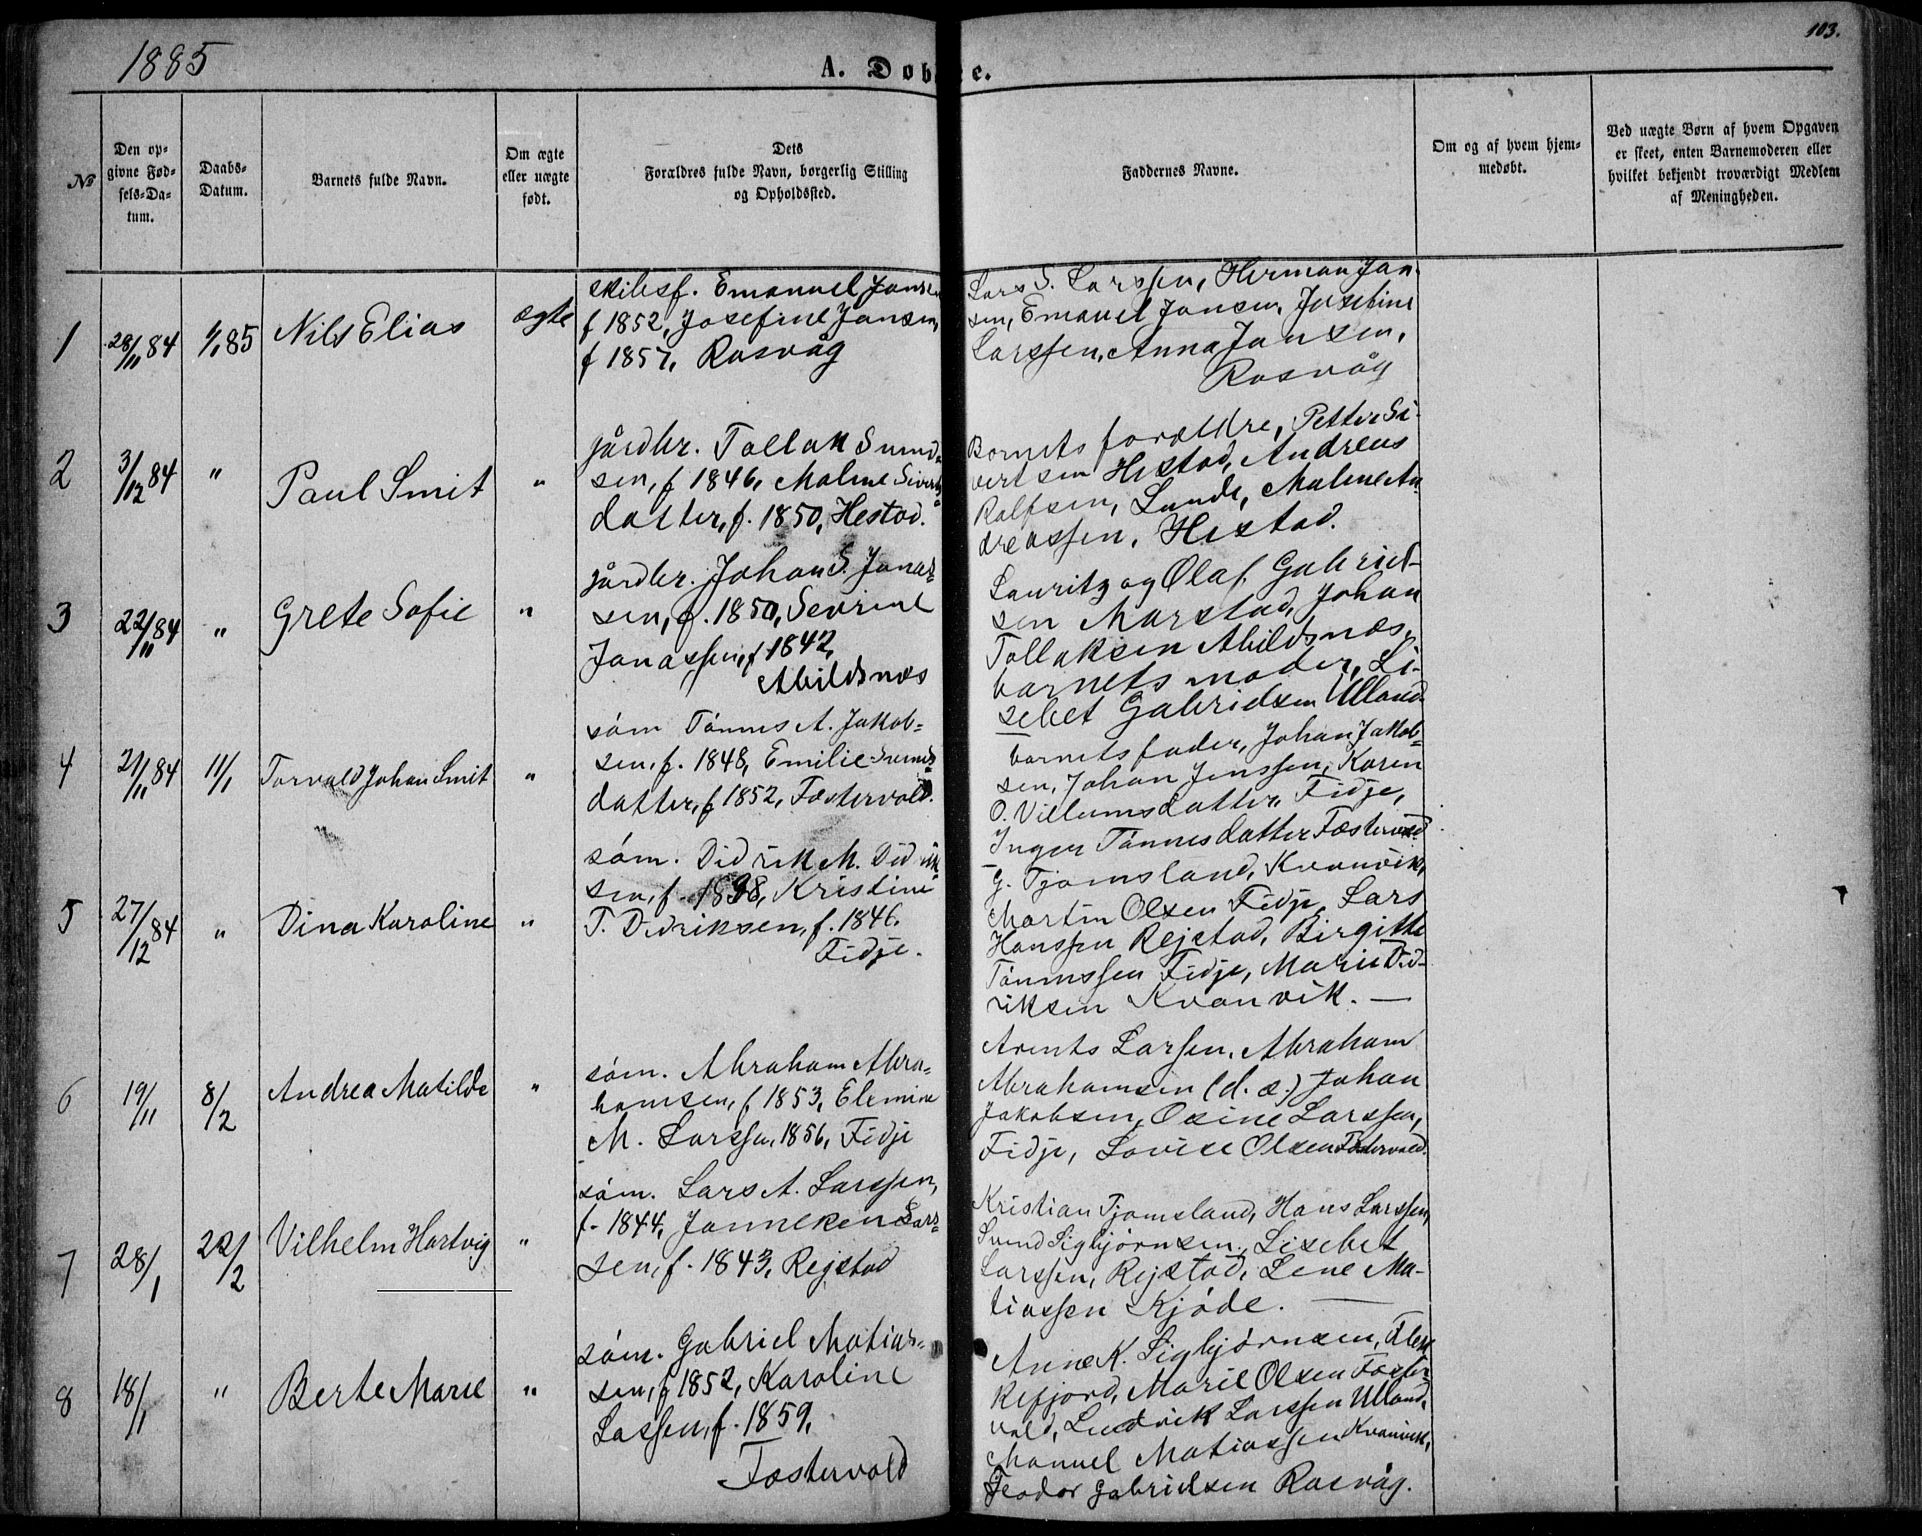 1885
103.
A. Døbte.
№
Den op-
givne Fød-
sels-Da-
tum.
Daabs-
Datum.
Barnets fulde Navn.
Om ægte
eller uægte
født.
Dets
Forældres fulde Navn, borgerlig Stilling
og Opholdssted.
Faddernes Navne.
Om og af hvem hjem-
medøbt.
Ved uægte Børn af hvem Opgaven
er skeet, enten Barnemoderen eller
hvilket bekjendt troværdigt Medlem
af Meningheden.
1
28/11 84
1/1 85
Nils Elias
ægte
skibsf. Emanuel Jansen
f 1852, Josefine Jansen,
f 1857, Rasvåg
Lars S. Larssen, Herman Jan-
sen, Emanuel Jansen, Josefine
Larssen, Anna Jansen,
Rasvåg
2
3/12 84
"
Paul Smit
"
gårdbr. Tollak Svend-
sen, f 1846, Malene Siverts-
datter, f. 1850, Hestad.
Barnets forældre, Petter Si-
vertsen Hestad, Andreas
Ralfsen, Lunde, Malene An-
dreassen, Hestad.
3
22/11 84
"
Grete Sofie
"
gårdbr. Johan S. Jonas-
sen, f. 1850, Sevrine
Jonassen, f 1842,
Abildsnæs
Lauritz og Olaf Gabriel-
sen Marstad, Johan
Tollaksen Abildsnæs,
barnets moder, Li-
sebet Gabrielsen Ulland
4
21/11 84
11/1
Torvald Johan Smit
"
søm Tønnes A. Jakob-
sen, f. 1848, Emilie Svends-
datter, f 1852, Fæstervold.
barnets fader, Johan Jakob-
sen, Johan Jenssen, Karen
O. Villumsdatter, Fidje,
Inger Tønnesdatter Fæstervold
5
27/12 84
"
Dina Karoline
"
søm. Didrik M. Didrik-
sen, f. 1838, Kristine
T. Didriksen, f. 1846.
Fidje.
G. Tjomsland, Kvanvik,
Martin Olsen Fidje, Lars
Hanssen Rejstad, Birgitte
Tønnessen Fidje, Marie Did-
riksen Kvanvik. —
6
19/11
8/2
Andrea Matilde
"
søm. Abraham Abra-
hamsen, f 1853, Elemine
M. Larssen, 1856, Fidje
Arents Larsen, Abraham
Abrahamsen (d. æ.) Johan
Jakobsen, Osine Larssen,
Fidje, Lovise Olsen Fæstervold.
7
28/1
22/2
Vilhelm Hartvig
"
søm. Lars A. Larssen,
f. 1844, Janneken Lars-
sen, f. 1843, Rejstad
Kristian Tjomsland, Hans Larssen,
Svend Sigbjørnsen, Lisebet
Larssen, Rejstad, Lene Ma-
tiassen Kjøde. —
8
18/1
"
Berte Marie
"
søm. Gabriel Matias-
sen, f 1852, Karoline
Lassen, f. 1859,
Fæstervold
Anne K. Sigbjørnsen, Flek-
kefjord, Marie Olsen Fæster-
vold, Ludvik Larssen Ulland,
Manuel Matiassen Kvanvik,
Teodor Gabrielsen Rasvåg.